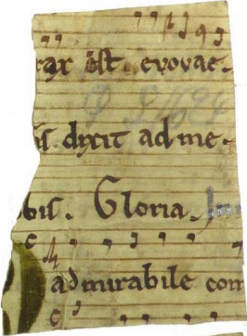 est. evovae.
dixit ad me.
bis. Gloria.
admirabile com